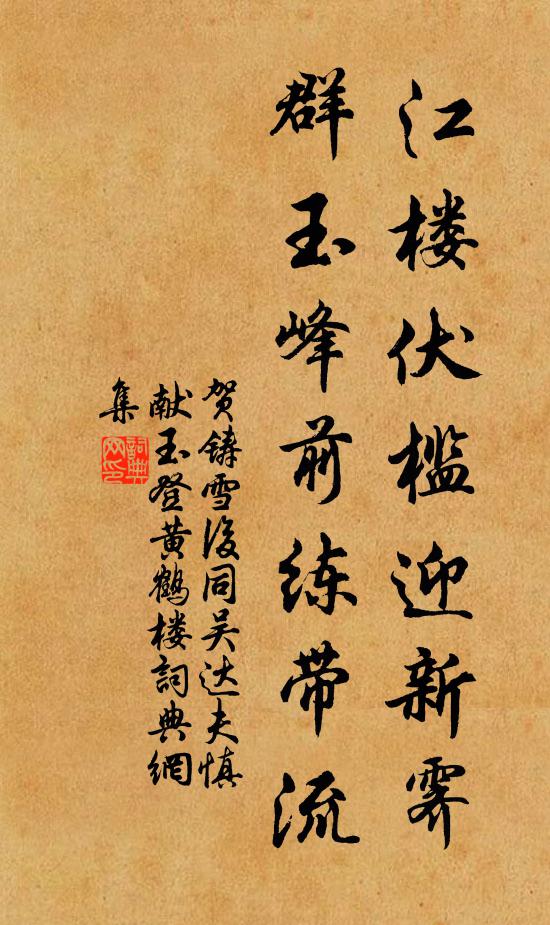 江楼伏槛迎新霁
群玉峰前练带流
贺铸雪后同吴达夫慎
献玉登黄鹤楼词典網
集